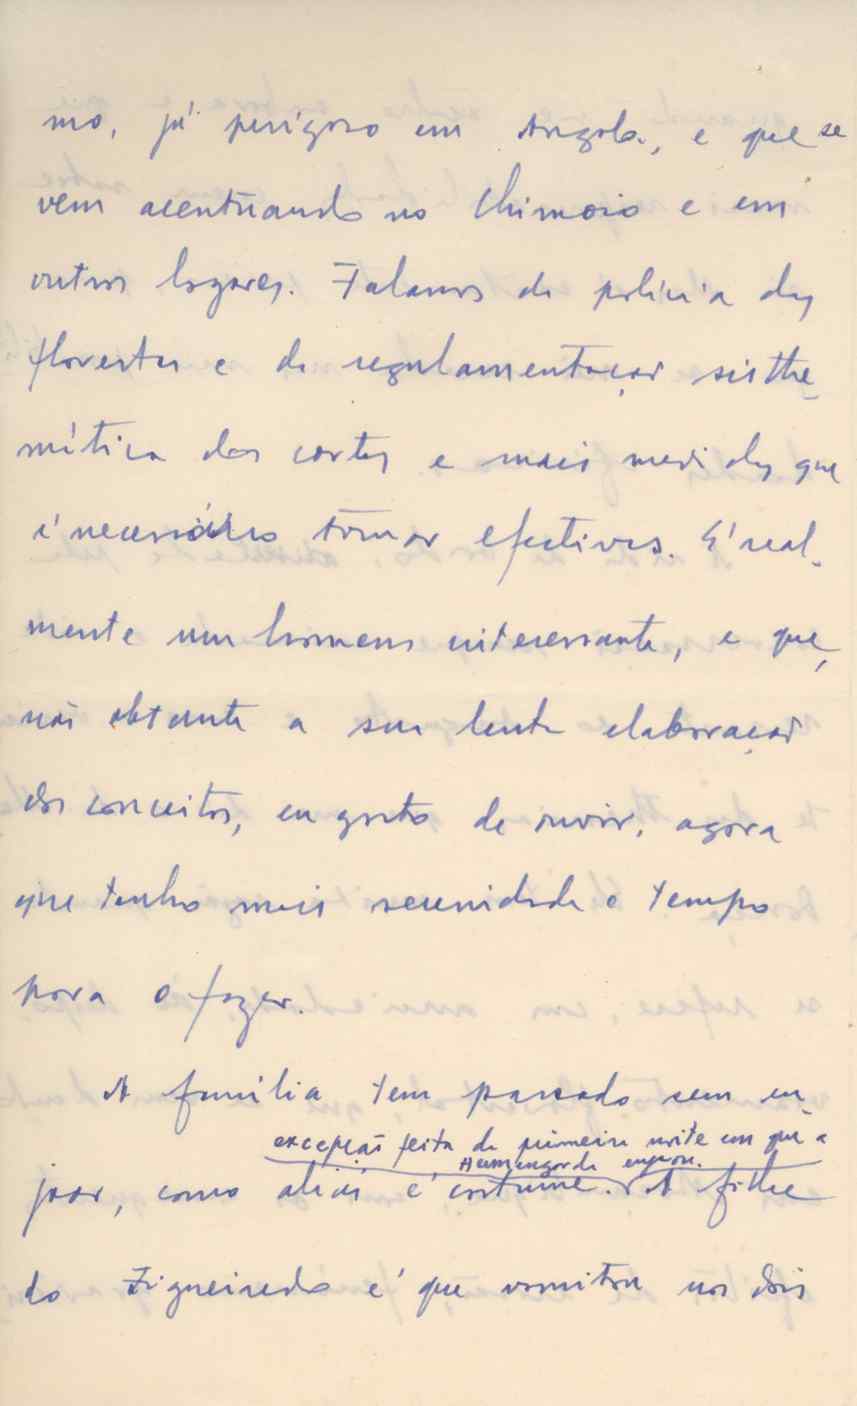 mo, já perigoso em Angola, e que se
vem acentuando no Chimoio e em
outros logares. Falamos de policia das
florestas e de regulamentação sisthe-
mática dos cortes e mais medidas que
é necessário tornar efectivas. E' real-
mente um homem interessante, e que,
não obstante a sua lenta elaboração
dos conceitos, eu gosto de ouvir, agora
que tenho mais serenidade e tempo
para o fazer.
A família tem passado sem en-
excepção feita da primeira noite em que a
Hermengarda enjoou.
joar, como aliás é costume. A filha
do Figueiredo é que vomitou nos dois